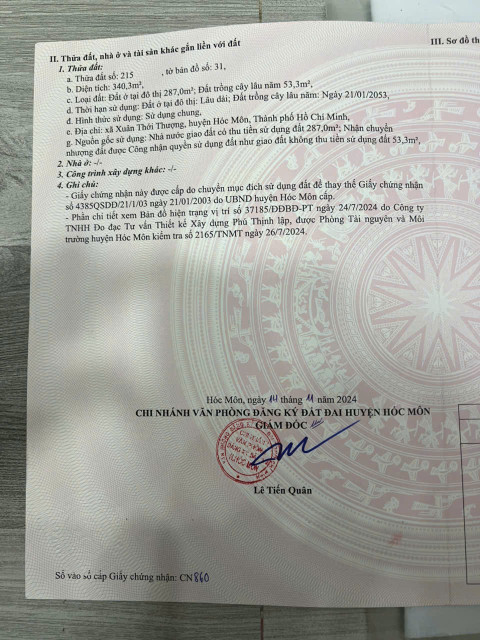 II. Thửa đất, nhà ở và tài sản khác gắn liền với đất
III. Sơ đồ th
1. Thửa đất:
a. Thửa đất số: 215 , tờ bản đồ số: 31,
b. Diện tích: 340,3m²,
c. Loại đất: Đất ở tại đô thị 287,0m²; Đất trồng cây lâu năm 53,3m²,
d. Thời hạn sử dụng: Đất ở tại đô thị: Lâu dài; Đất trồng cây lâu năm: Ngày 21/01/2053,
đ. Hình thức sử dụng: Sử dụng chung,
e. Địa chỉ: xã Xuân Thới Thượng, huyện Hóc Môn, Thành phố Hồ Chí Minh,
g. Nguồn gốc sử dụng: Nhà nước giao đất có thu tiền sử dụng đất 287,0m²; Nhận chuyển
nhượng đất được Công nhận quyền sử dụng đất như giao đất không thu tiền sử dụng đất 53,3m²,
2. Nhà ở: -/-
3. Công trình xây dựng khác: -/-
4. Ghi chú:
- Giấy chứng nhận này được cấp do chuyển mục đích sử dụng đất để thay thế Giấy chứng nhận
số 4385QSDĐ/21/1/03 ngày 21/01/2003 do UBND huyện Hóc Môn cấp.
- Phần chi tiết xem Bản đồ hiện trạng vị trí số 37185/ĐĐBĐ-PT ngày 24/7/2024 do Công ty
TNHH Đo đạc Tư vấn Thiết kế Xây dựng Phú Thịnh lập, được Phòng Tài nguyên và Môi
trường huyện Hóc Môn kiểm tra số 2165/TNMT ngày 26/7/2024.
Hóc Môn, ngày 14 tháng 11 năm 2024
CHI NHÁNH VĂN PHÒNG ĐĂNG KÝ ĐẤT ĐAI HUYỆN HÓC MÔN
GIÁM ĐỐC
Lê Tiến Quân
Số vào sổ cấp Giấy chứng nhận: CN 860